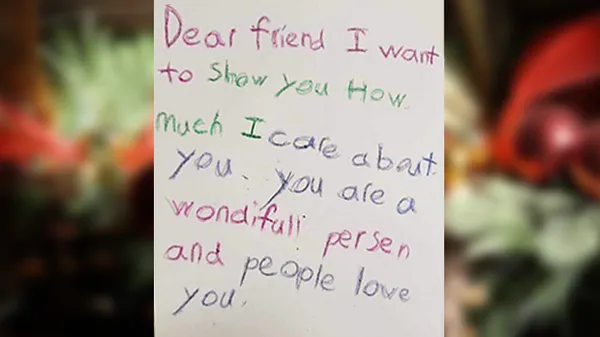 Dear friend I want
to show you How
much I care about
you. you are a
wondifull persen
and people love
you.